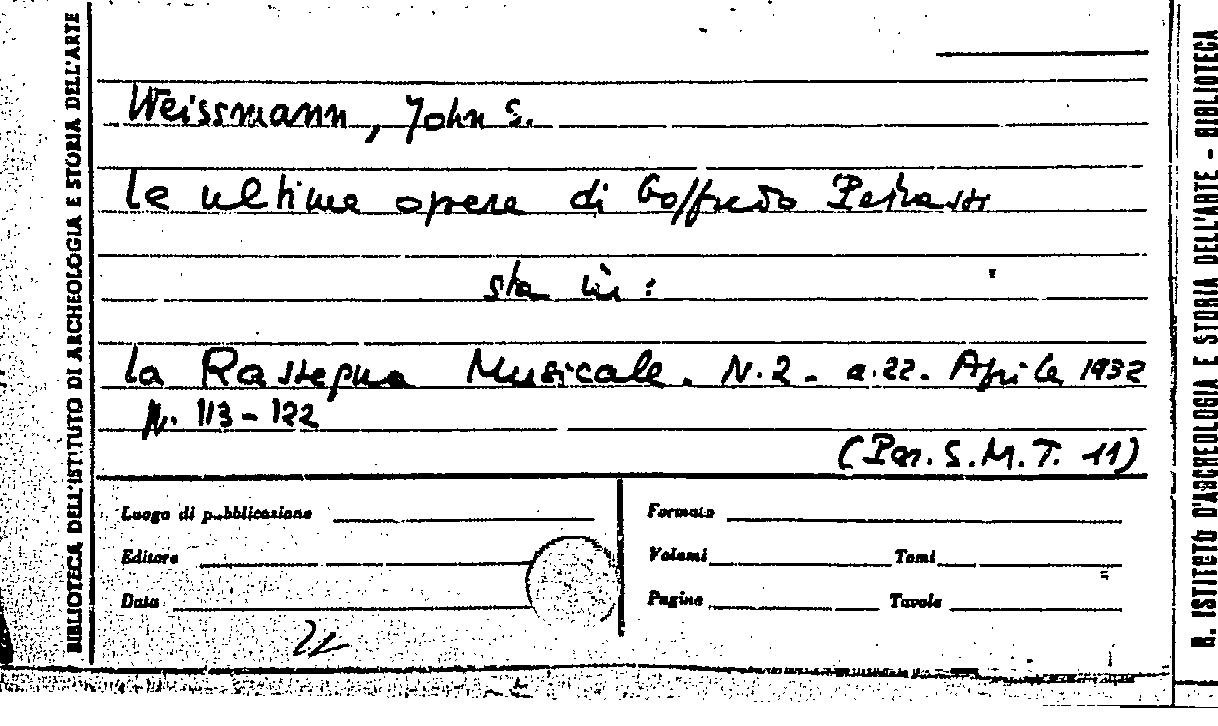 BIBLIOTECA DELL'ISTITUTO DI ARCHEOLOGIA E STORIA DELL'ARTE
Weissmann, John S.
Le ultime opere di Goffredo Petrassi
sta in:
La Rassegna Musicale. N.2 - a.22. Aprile 1932
N. 113-122
(Per. S.M.T. 11)
Luogo di pubblicazione
Editore
Data
Formato
Volumi Tomi
Pagine Tavole
22
R. ISTITUTO D'ARCHEOLOGIA E STORIA DELL'ARTE - BIBLIOTECA